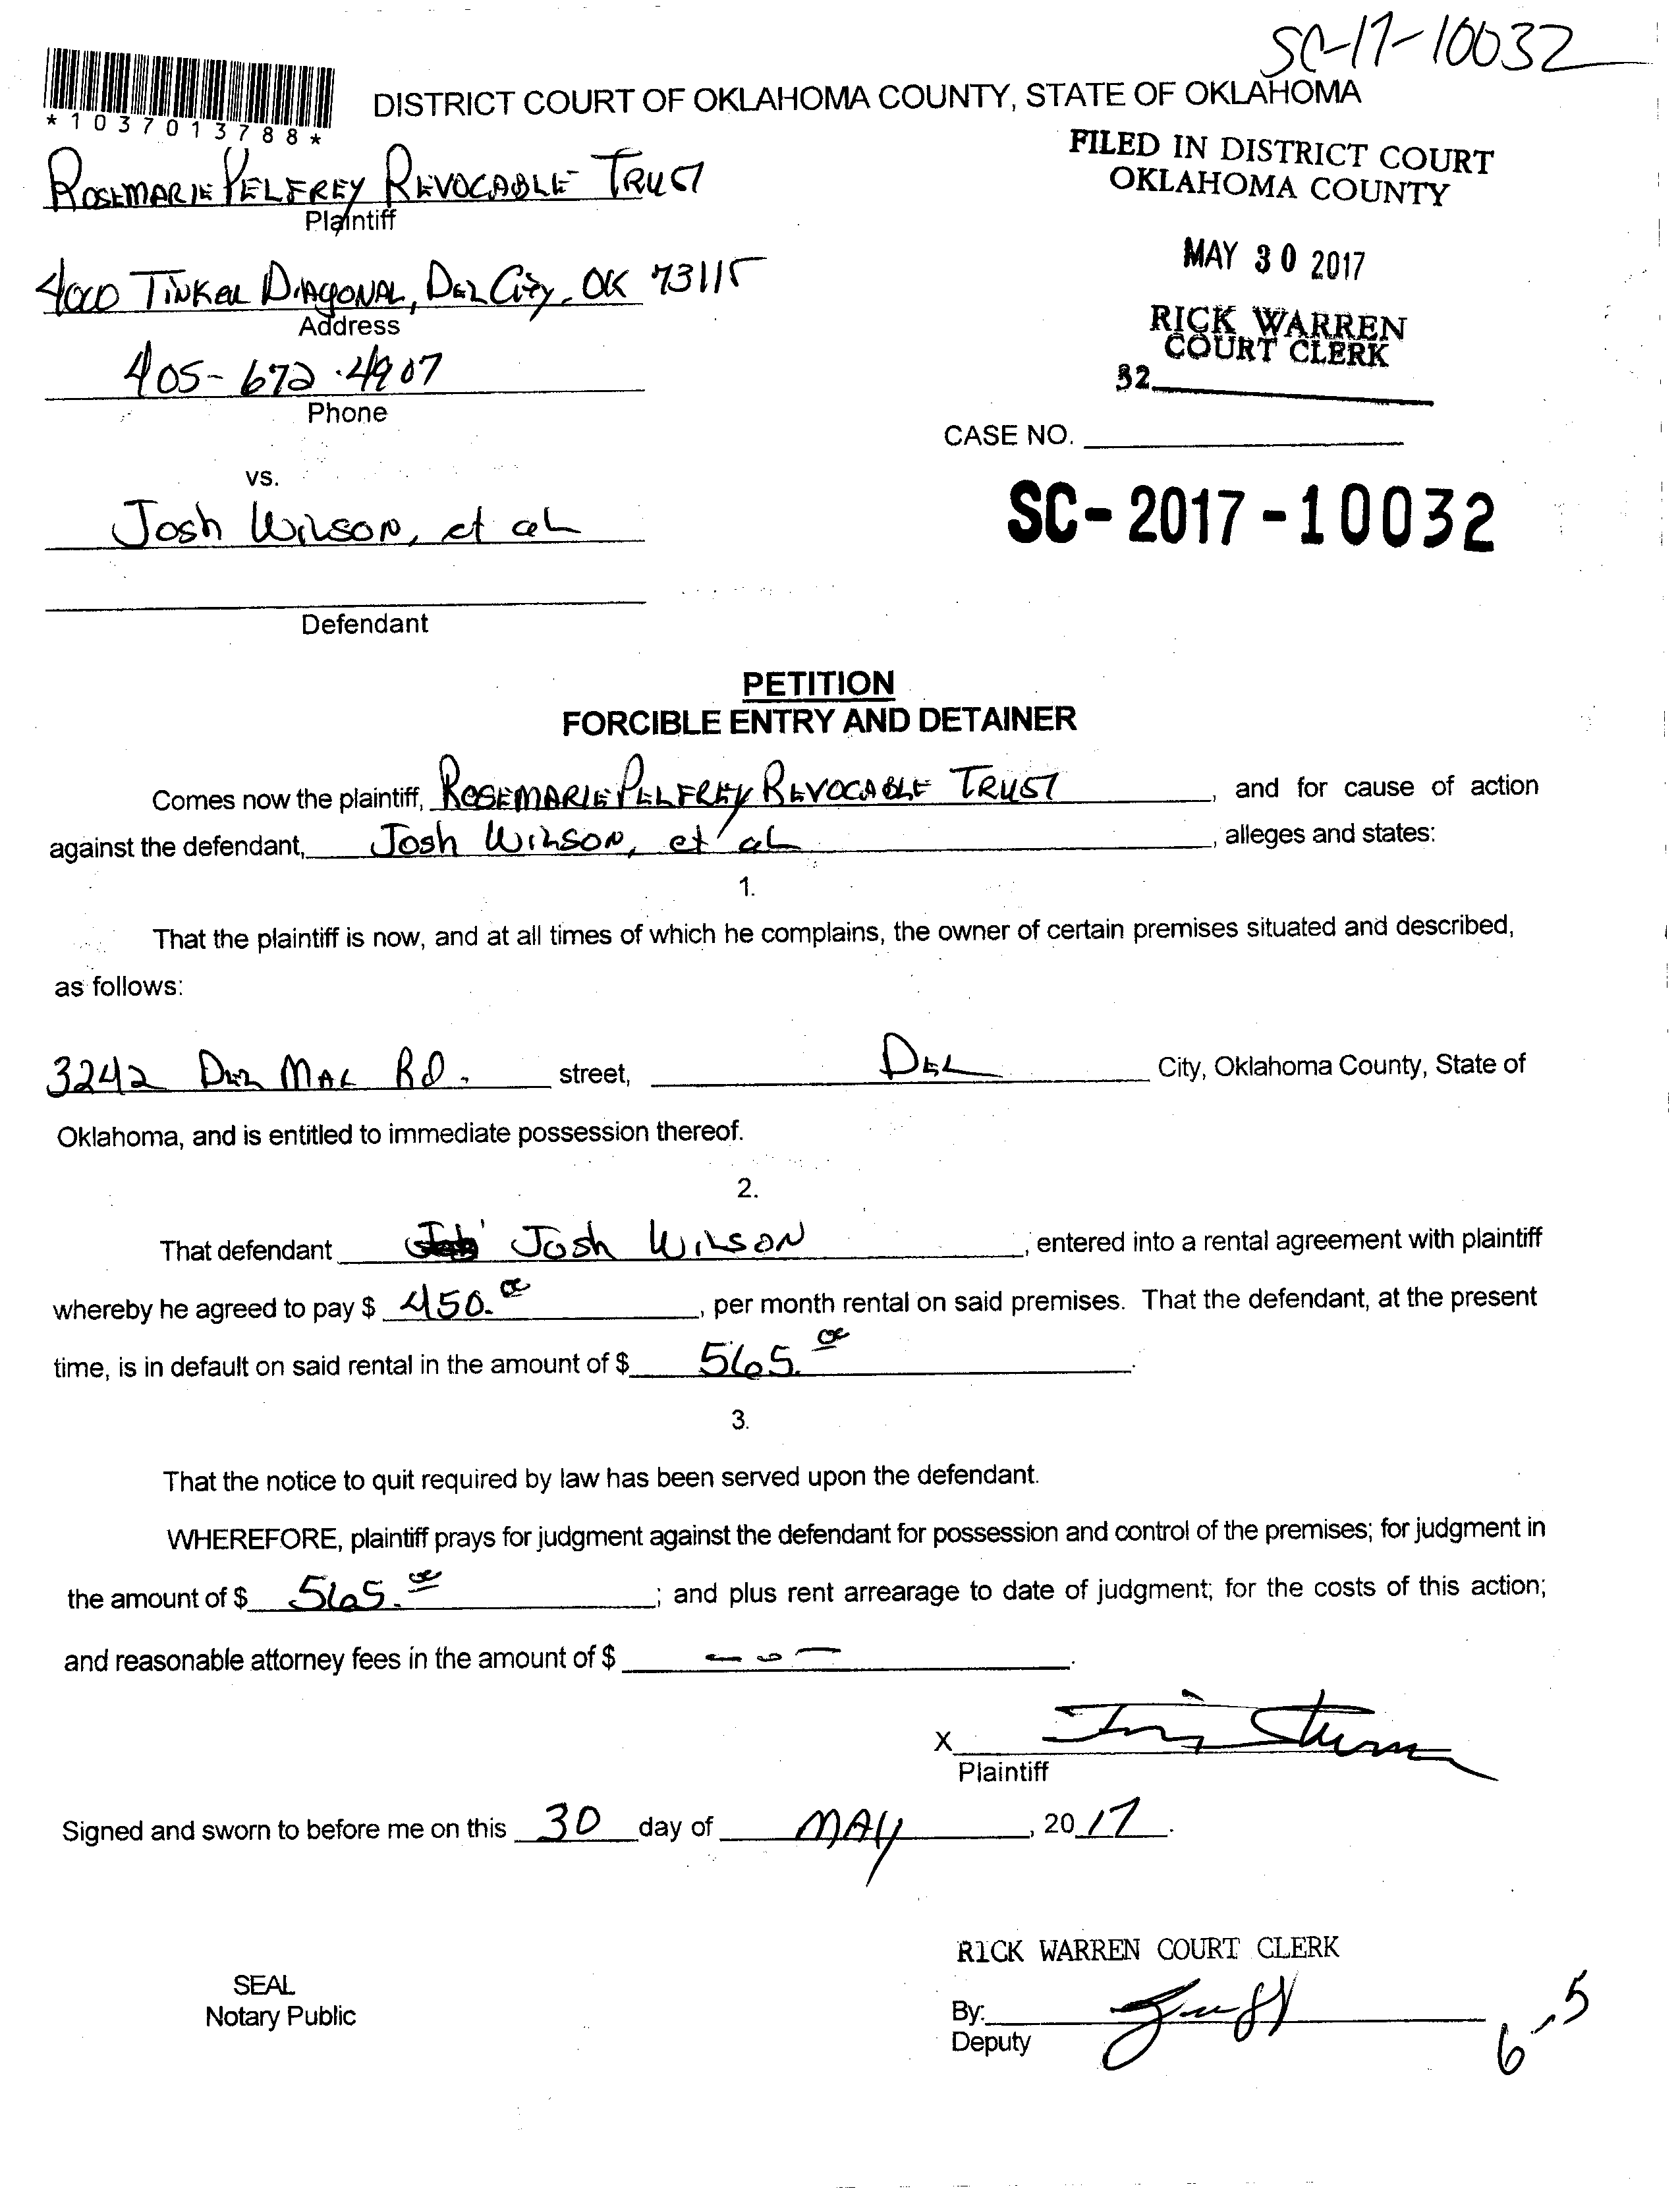 SC-17-10032
*1037013788*
DISTRICT COURT OF OKLAHOMA COUNTY, STATE OF OKLAHOMA
FILED IN DISTRICT COURT
OKLAHOMA COUNTY
ROSEMARIE PELFREY REVOCABLE TRUST
Plaintiff
MAY 30 2017
4000 TINKER DIAGONAL, DEL CITY, OK 73115
Address
RICK WARREN
COURT CLERK
405-672-4907
32
Phone
CASE NO.
vs.
SC-2017-10032
Josh WILSON, et al
Defendant
PETITION
FORCIBLE ENTRY AND DETAINER
Comes now the plaintiff, ROSEMARIE PELFREY REVOCABLE TRUST, and for cause of action
against the defendant, Josh WILSON, et al, alleges and states:
1.
That the plaintiff is now, and at all times of which he complains, the owner of certain premises situated and described,
as follows:
3242 DEL MAR RD. street, DEL City, Oklahoma County, State of
Oklahoma, and is entitled to immediate possession thereof.
2.
That defendant Josh WILSON, entered into a rental agreement with plaintiff
whereby he agreed to pay $ 450.00, per month rental on said premises. That the defendant, at the present
time, is in default on said rental in the amount of $ 565.00.
3.
That the notice to quit required by law has been served upon the defendant.
WHEREFORE, plaintiff prays for judgment against the defendant for possession and control of the premises; for judgment in
the amount of $ 565.00; and plus rent arrearage to date of judgment; for the costs of this action;
and reasonable attorney fees in the amount of $ - 0 -.
X
Plaintiff
Signed and sworn to before me on this 30 day of MAY, 2017.
RICK WARREN COURT CLERK
SEAL
Notary Public
By:
Deputy
6-5